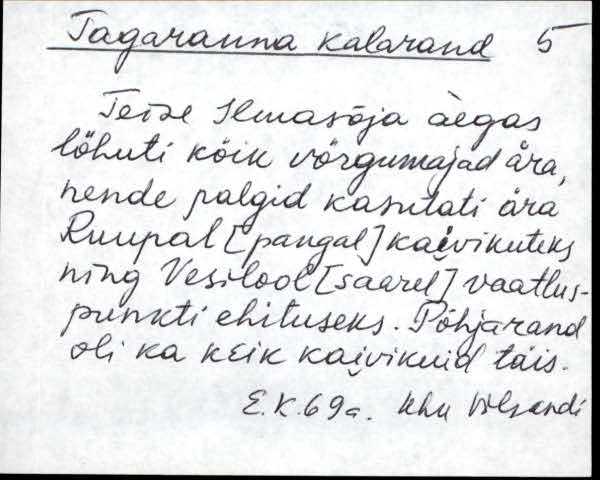 Tagaranna kalarand 5
Teise Ilmasõja aegas
lõhuti kõik võrgumajad ära,
nende palgid kasutati ära
Ruupal [pangal] kaivikuteks
ning Vesilool [saarel] vaatlus-
punkti ehituseks. Põhjarand
oli ka keik kaivikuid täis.
E.K. 69a. Khk Vilsandi